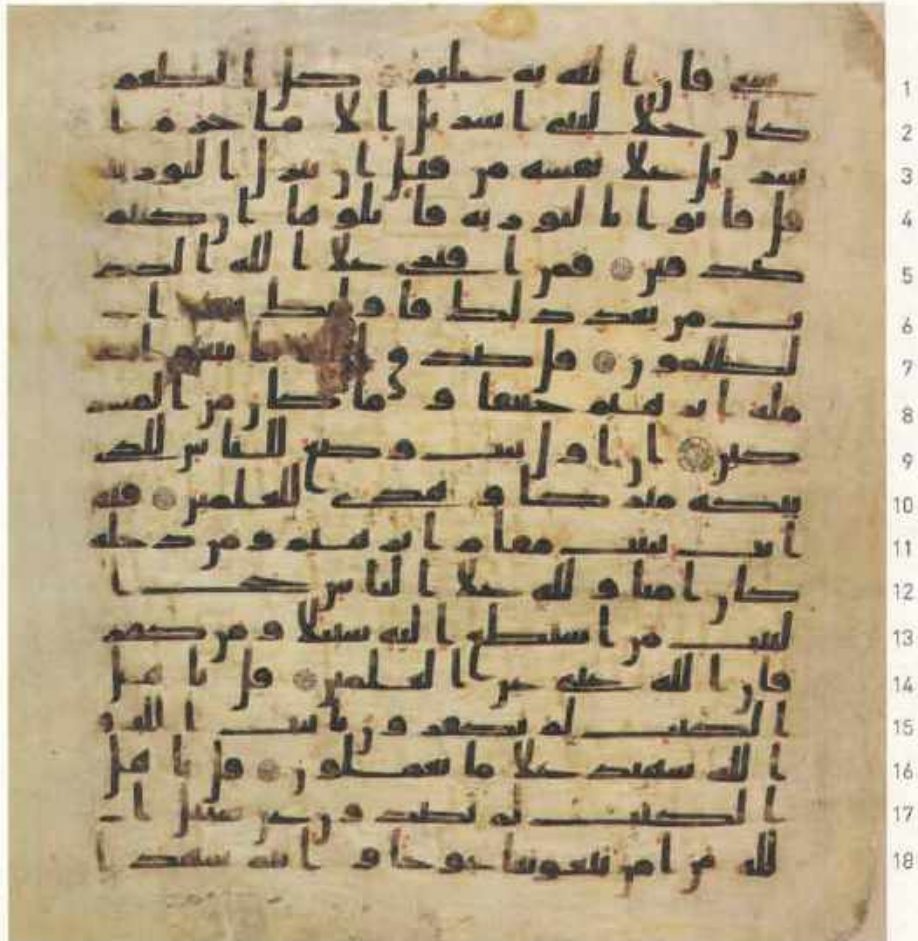 1 شى فان الله به عليم كل الطعم
2 كان حلا لبنى اسريل الا ما حرم ا
3 سريل على نفسه من قبل ان تنزل التوريه
4 قل فاتوا بالتوريه فاتلوها ان كنتم
5 صدقين فمن افترى على الله الكذ
6 ب من بعد ذلك فاولئك هم ا
7 لظلمون قل صدق الله فاتبعوا
8 مله ابرهيم حنيفا وما كان من المشر
9 كين ان اول بيت وضع للناس للذى
10 ببكه مبركا وهدى للعلمين فيه
11 ايت بينت مقام ابرهيم ومن دخله
12 كان امنا ولله على الناس حج ا
13 لبيت من استطع اليه سبيلا ومن كفر
14 فان الله غنى عن العلمين قل ياهل
15 الكتب لم تكفرون بايت الله و
16 الله شهيد على ما تعملون قل ياهل
17 الكتب لم تصدون عن سبيل ا
18 لله من امن تبغونها عوجا وانتم شهدا